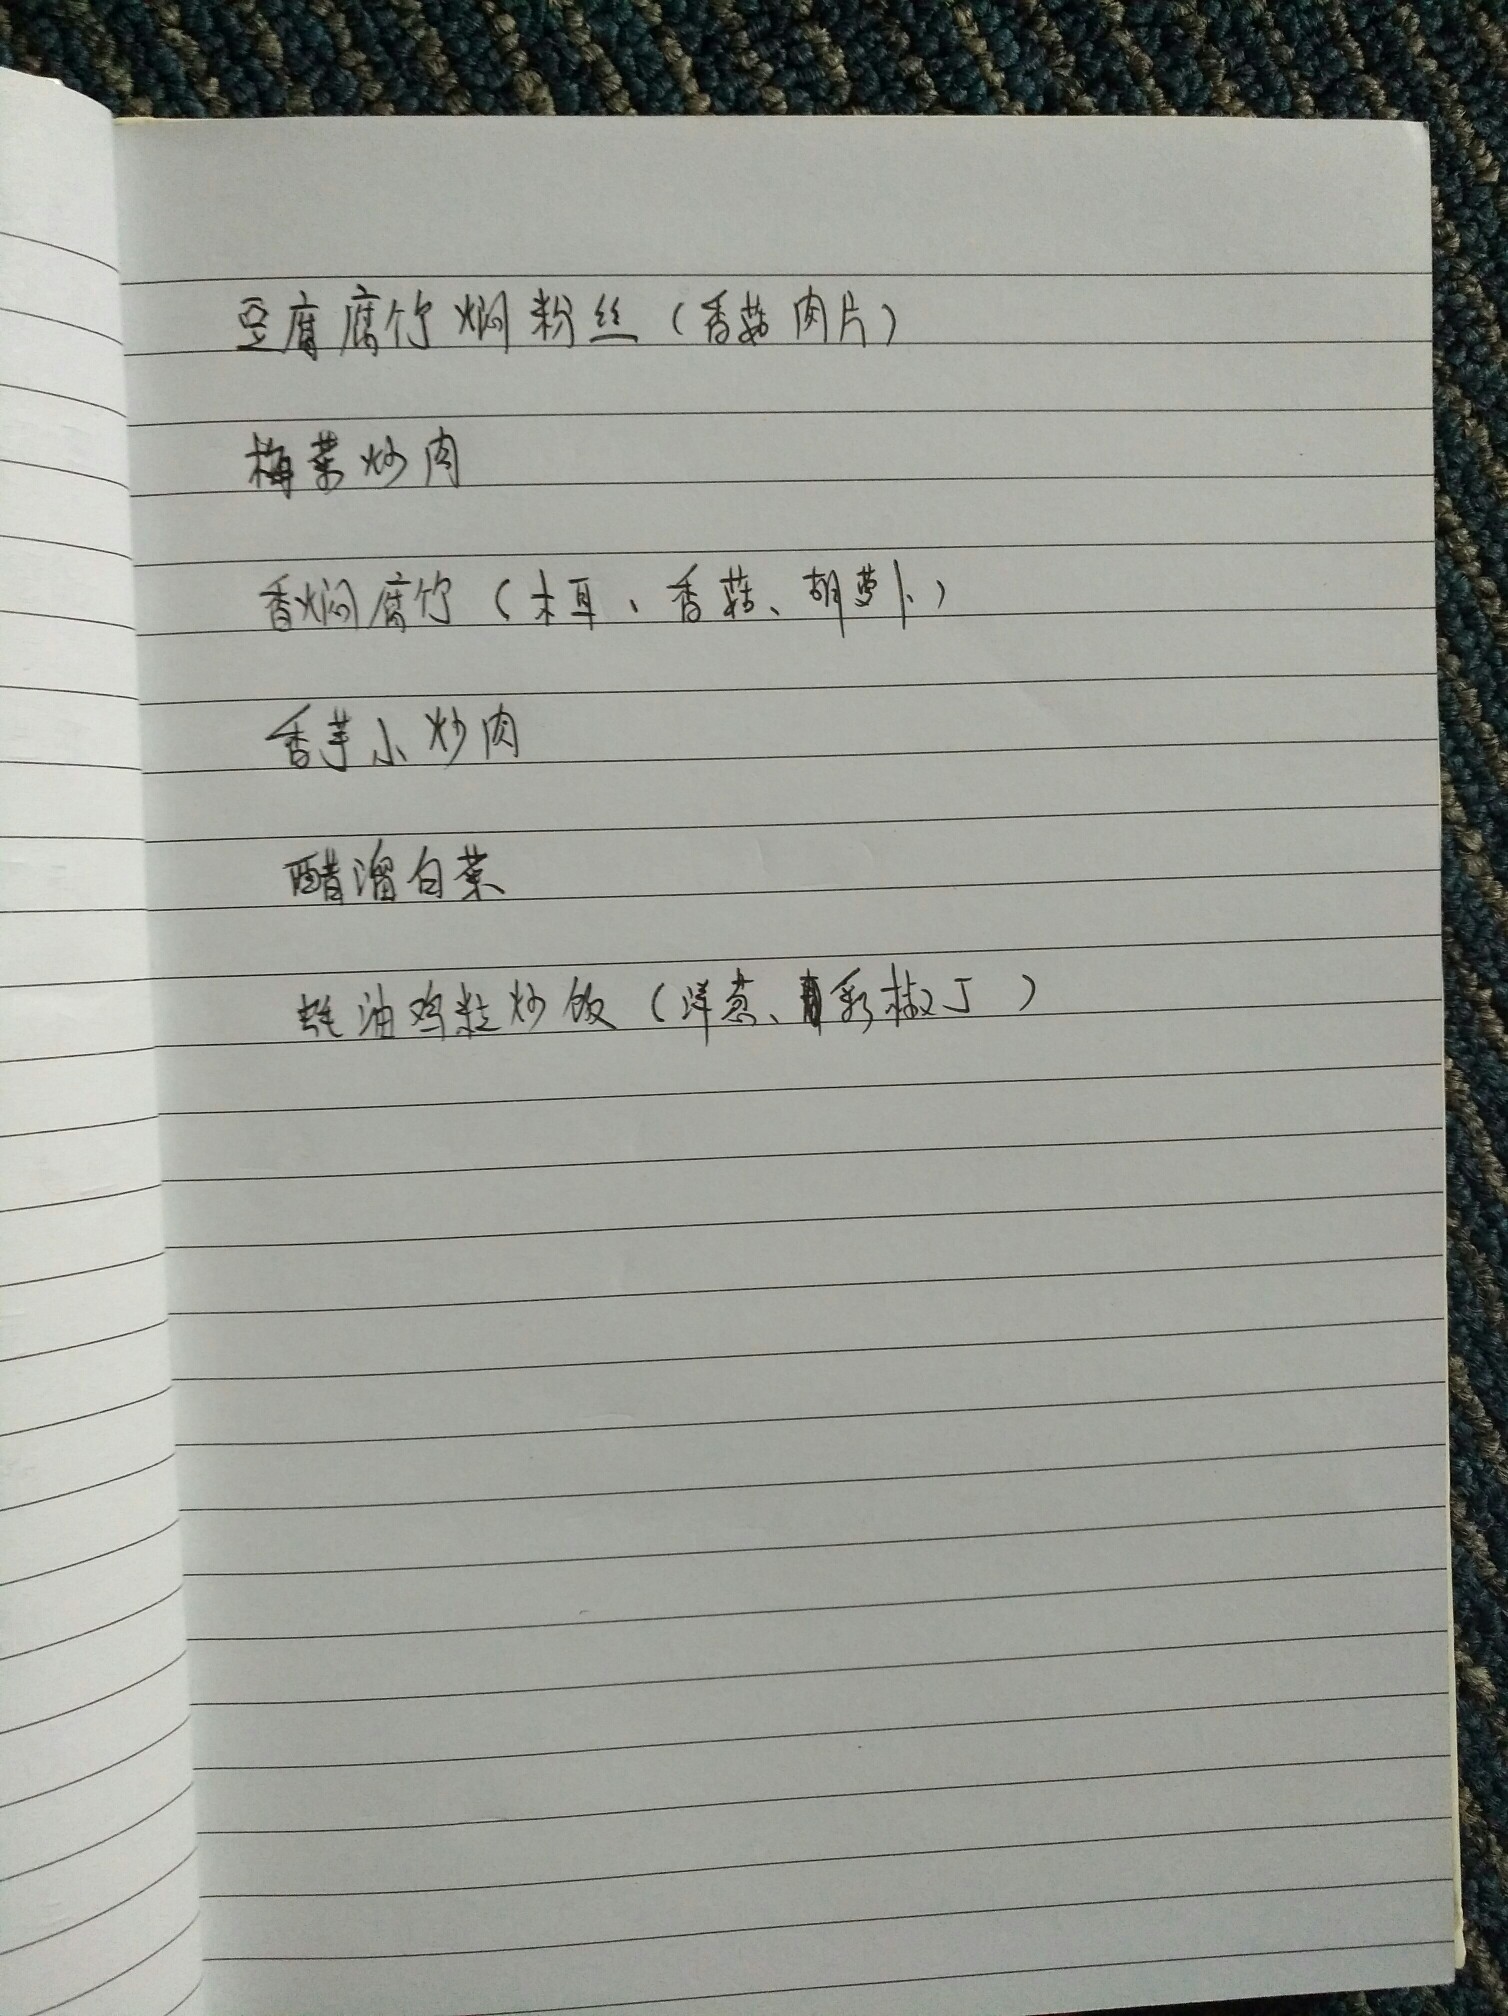 豆腐腐竹焖粉丝（香菇肉片）
梅菜炒肉
香焖腐竹（木耳、香菇、胡萝卜）
香芋小炒肉
醋溜白菜
蚝油鸡粒炒饭（洋葱、彩椒丁）